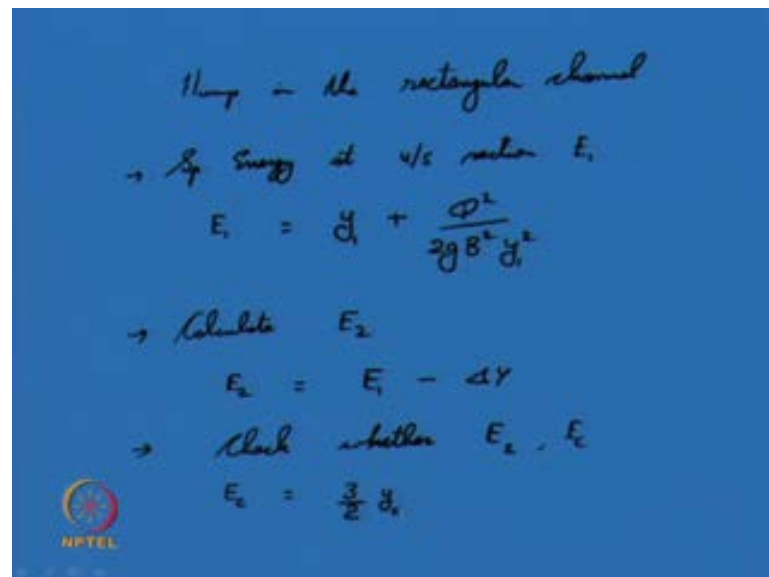 Hump in the rectangular channel
→ Sp Energy at u/s section E₁
E₁ = y₁ + Q² / 2gB²y₁²
→ Calculate E₂
E₂ = E₁ - ΔY
→ Check whether E₂, E_c
E_c = 3/2 y_c
NPTEL